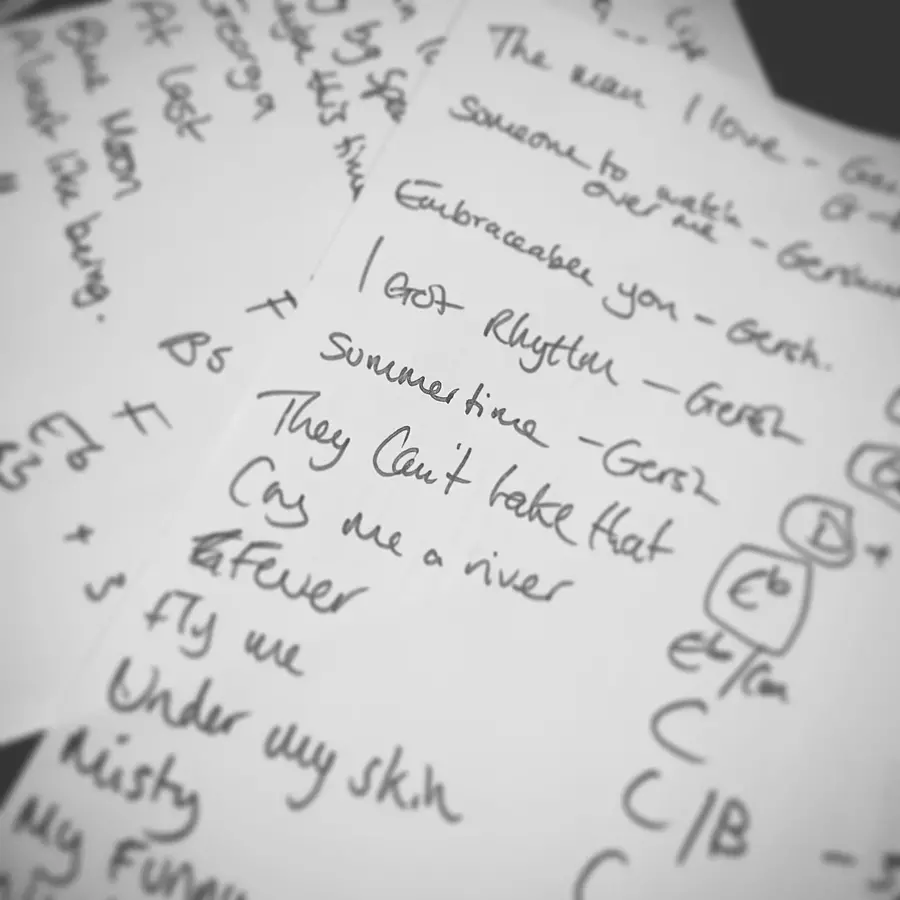 The man I love -
Someone to watch
over me -
Embraceable you - Gersh.
I Got Rhythm - Gersh
Summertime - Gersh
They Can't take that
Cry me a river
Fever
Fly me
Under my skin
Misty
My Funny
D
Eb
Eb/Cm
C
C/B
C
Georgia
At last
Blue Moon
Almost like being.
maybe this time
F
Bb
F
Eb